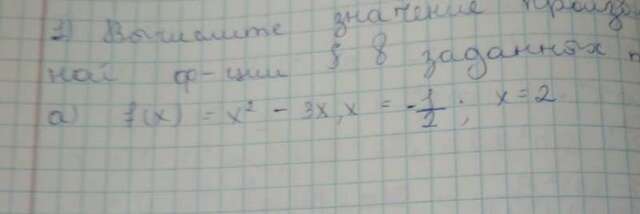 3) Вычислите значение произв
ной ф-ции в заданных
а) f(x) = x² - 3x, x = -1/2; x = 2